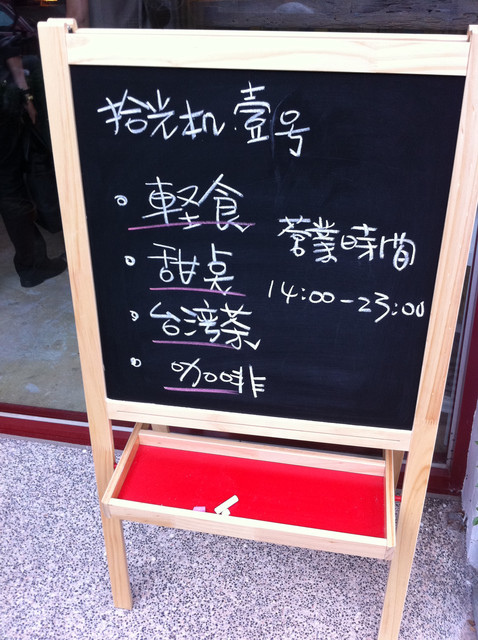 拾光机.壹号
軽食
甜点
台湾茶
咖啡
营業時間
14:00-23:00